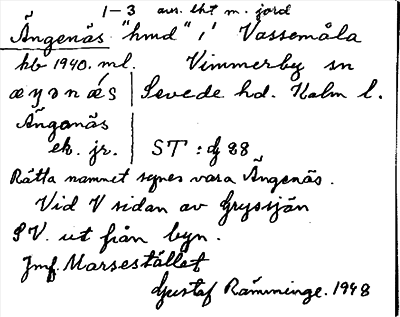 1-3 avs. lht m. jord
Ängenäs "hmd" i Vassemåla
kb 1940. ml. Vimmerby sn
æŋənǽs Sevede hd. Kalm l.
Änganäs
ek. jr. ST : dj 88
Rätta namnet synes vara Ängenäs.
Vid V sidan av Gryssjön
SV. ut från byn.
Jmf. Marsestället
Gustaf Rämminge. 1948